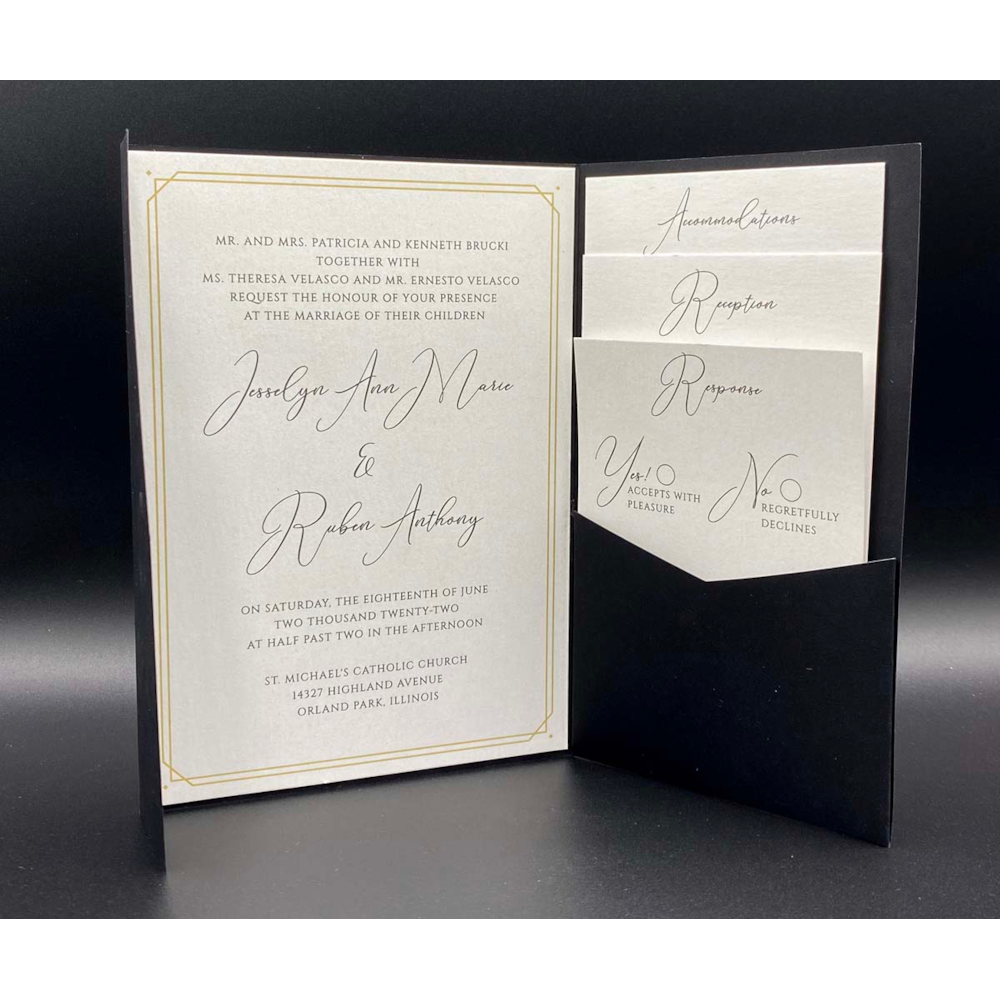 MR. AND MRS. PATRICIA AND KENNETH BRUCKI
TOGETHER WITH
MS. THERESA VELASCO AND MR. ERNESTO VELASCO
REQUEST THE HONOUR OF YOUR PRESENCE
AT THE MARRIAGE OF THEIR CHILDREN
Jesselyn Ann Marie
&
Ruben Anthony
ON SATURDAY, THE EIGHTEENTH OF JUNE
TWO THOUSAND TWENTY-TWO
AT HALF PAST TWO IN THE AFTERNOON
ST. MICHAEL'S CATHOLIC CHURCH
14327 HIGHLAND AVENUE
ORLAND PARK, ILLINOIS
Accommodations
Reception
Response
Yes!
ACCEPTS WITH
PLEASURE
No
REGRETFULLY
DECLINES